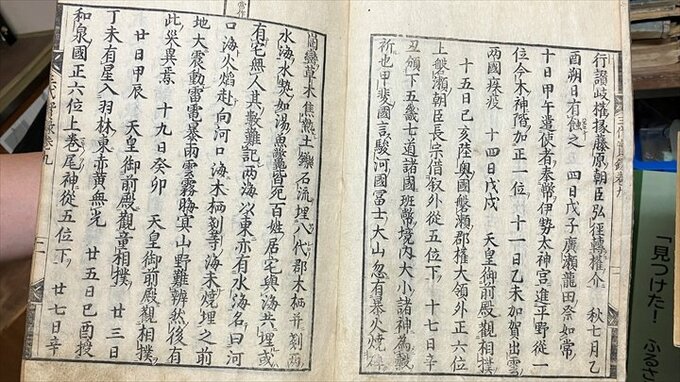 行讃岐權掾藤原朝臣弘徑轉權介　秋七月乙
酉朔日有蝕之　四日戊子廣瀬龍田祭如常
十日甲午遣使者奉幣伊勢太神宮進平野從一
位今木神階加正一位　十一日乙未加賀出雲
兩國疾疫　十四日戊戌　天皇御前殿觀相撲
十五日己亥陸奥國磐瀬郡權大領外正六位
上磐瀬朝臣長宗借叙外從五位下　十七日辛
丑頒下五畿七道諸國班幣境内大小諸神爲穀
祈也甲斐國言駿河國富士大山忽有暴火燒碎
崗巒草木焦熱土鑠石流埋八代郡本栖并剗兩
水海水熱如湯魚鼈皆死百姓居宅與海共埋或
有宅無人其數難記兩海以東亦有水海名曰河
口海火焰赴向河口海本栖剗等海未燒埋之前
地大震動雷電暴雨雲霧晦冥山野難辨然後有
此災異焉　十九日癸卯　天皇御前殿觀相撲
廿日甲辰　天皇御前殿觀童相撲　廿三日
丁未有星入羽林東赤黄無光　廿五日己酉授
和泉國正六位上卷尾神從五位下　廿七日辛
三代實録卷九
「見つけた！　ふるさ